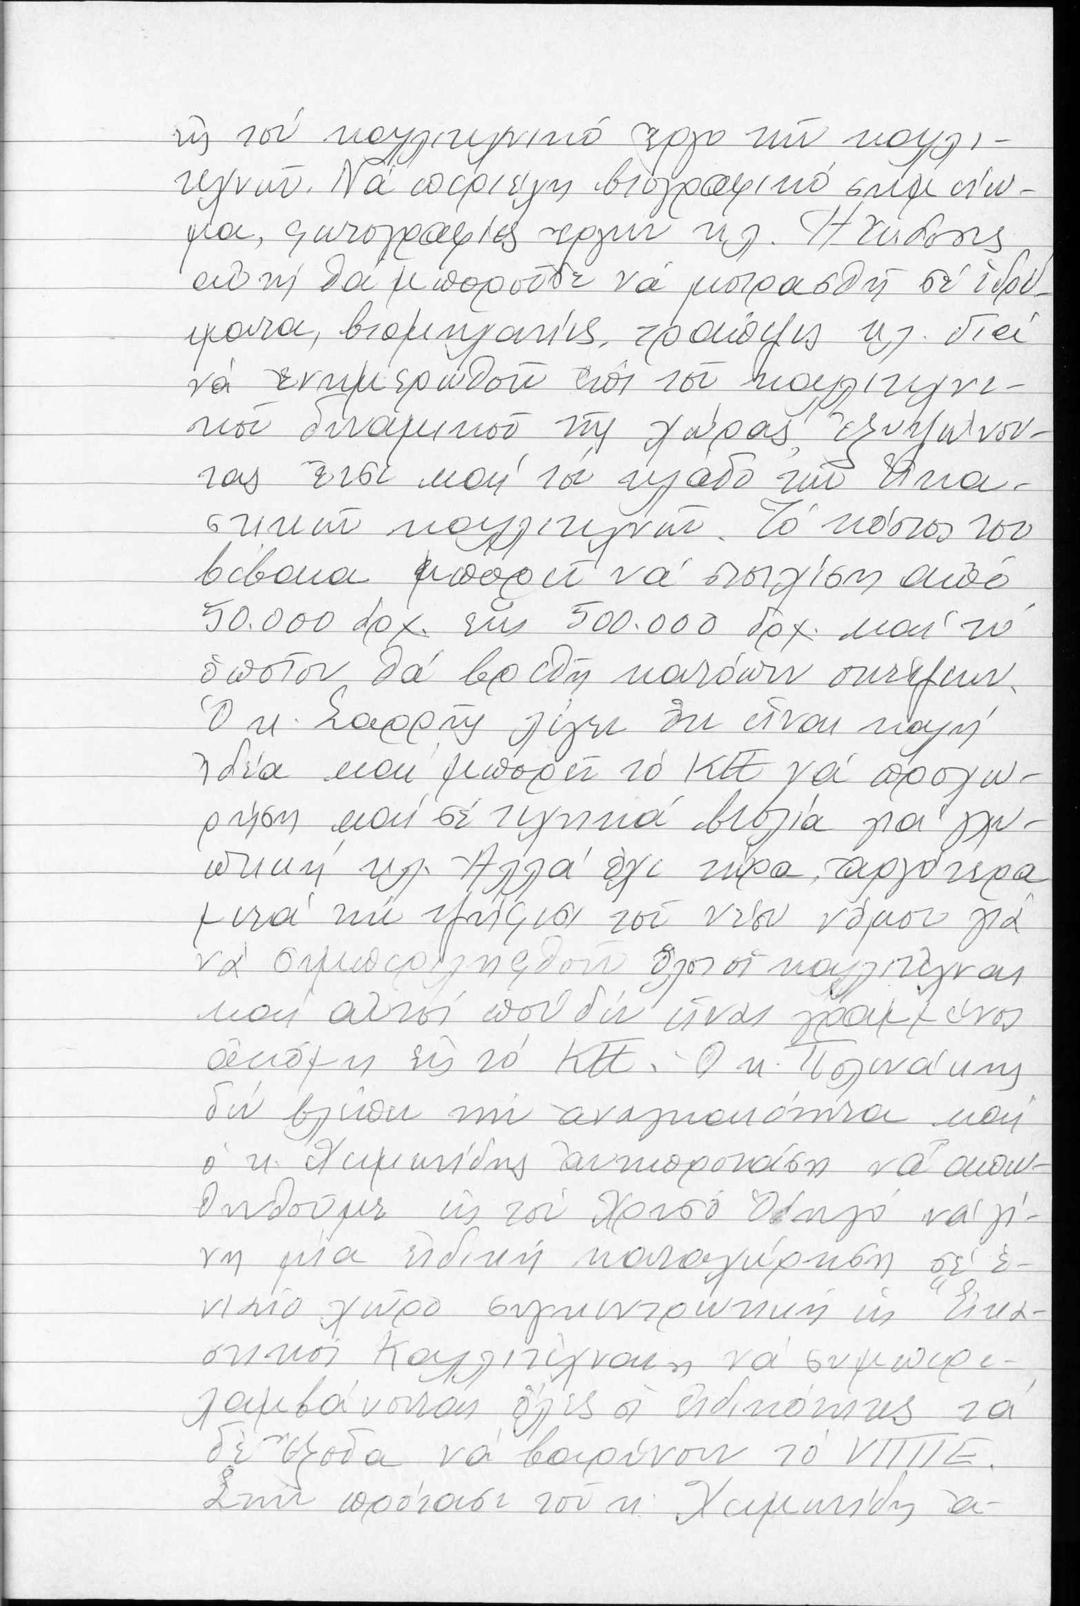 τῆς τοῦ καλλιτεχνικό ἔργο τῶν καλλι-
τεχνῶν. Νά περιέχη βιογραφικό σημείω-
μα, φωτογραφίες ἔργων κλ. Ἡ ἔκδοσις
αὐτή θά μποροῦσε νά μοιρασθῆ σέ ἱδρύ-
ματα, βιομηχανίες, τράπεζες κλ. διά
νά ἐνημερωθοῦν ἐπί τοῦ καλλιτεχνι-
κοῦ δυναμικοῦ τῆς χώρας, ἐξυψώνον-
τας ἔτσι καί τό κλάδο τῶν Εἰκα-
στικῶν καλλιτεχνῶν. Τό κόστος του
βέβαια μπορεῖ νά στοιχίση ἀπό
50.000 δρχ. ἕως 500.000 δρχ. καί τό
ὁποῖον θά βρεθῆ κατόπιν σκέψεων.
Ὁ κ. Σαρρῆς λέγει ὅτι εἶναι καλή
ἰδέα καί μπορεῖ τό ΚΠ νά προχω-
ρήση καί σέ τεχνικά βιβλία γιά γλυ-
πτική κλ. Ἀλλά ὄχι τώρα, ἀργότερα
μετά τήν ψήφιση τοῦ νέου νόμου γιά
νά συμπεριληφθοῦν ὅλοι οἱ καλλιτέχναι
καί αὐτοί πού δέν εἶναι γραμμένοι
ἀκόμη εἰς τό ΚΠ. Ὁ κ. Πολινάκης
δέν βλέπει τήν ἀναγκαιότητα καί
ὁ κ. ἀντιπροτάση νά ἀπευ-
θυνθοῦμε εἰς τόν Χρυσό Ὁδηγό νά γί-
νη μία εἰδική καταχώρηση σέ ἑ-
νιαῖο χῶρο συγκεντρωτική ὡς "Εἰκα-
στικοί Καλλιτέχναι" νά συμπερι-
λαμβάνονται ὅλες οἱ εἰδικότητες τά
δέ ἔξοδα νά βαρύνουν τό
Στήν πρόταση τοῦ κ. ἀ-